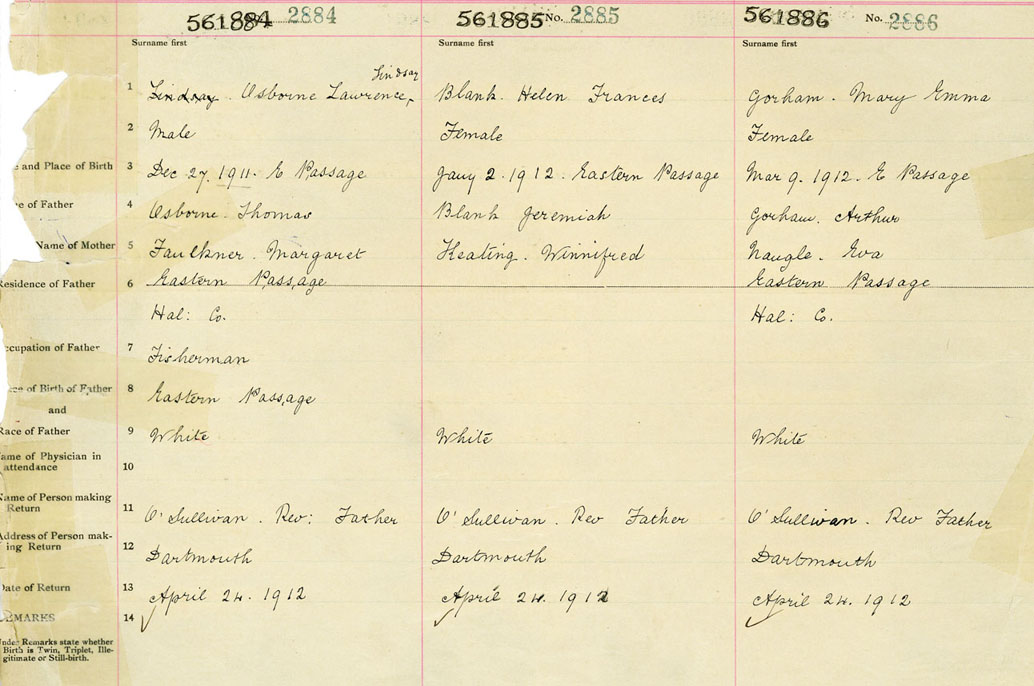 561884 2884
561885 No. 2885
561886 No. 2886
Surname first
Surname first
Surname first
1 Lindsay. Osborne Lawrence, Lindsay
Blank. Helen Frances
Gorham. Mary Emma
2 Male
Female
Female
and Place of Birth 3 Dec 27. 1911. E Passage
Jany 2. 1912. Eastern Passage
Mar 9. 1912. E Passage
of Father 4 Osborne. Thomas
Blank Jeremiah
Gorham. Arthur
Name of Mother 5 Faulkner. Margaret
Keating. Winnifred
Naugle. Eva
Residence of Father 6 Eastern Passage
Eastern Passage
Hal: Co.
Hal: Co.
ccupation of Father 7 Fisherman
of Birth of Father 8 Eastern Passage
and
Race of Father 9 White
White
White
ame of Physician in
attendance 10
Name of Person making
Return 11 O'Sullivan. Rev: Father
O'Sullivan. Rev Father
O'Sullivan. Rev Father
Address of Person mak-
ing Return 12 Dartmouth
Dartmouth
Dartmouth
Date of Return 13 April 24. 1912
April 24. 1912
April 24. 1912
EMARKS 14
Under Remarks state whether
Birth is Twin, Triplet, Ille-
gitimate or Still-birth.